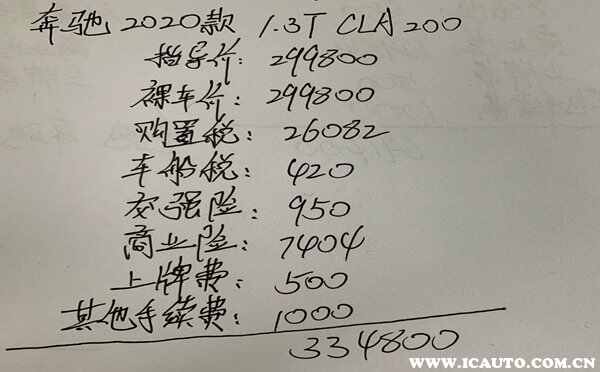 奔驰 2020款 1.3T CLA 200
指导价: 299800
裸车价: 299800
购置税: 26082
车船税: 420
交强险: 950
商业险: 7404
上牌费: 500
其他手续费: 1000
334800
WWW.ICAUTO.COM.CN